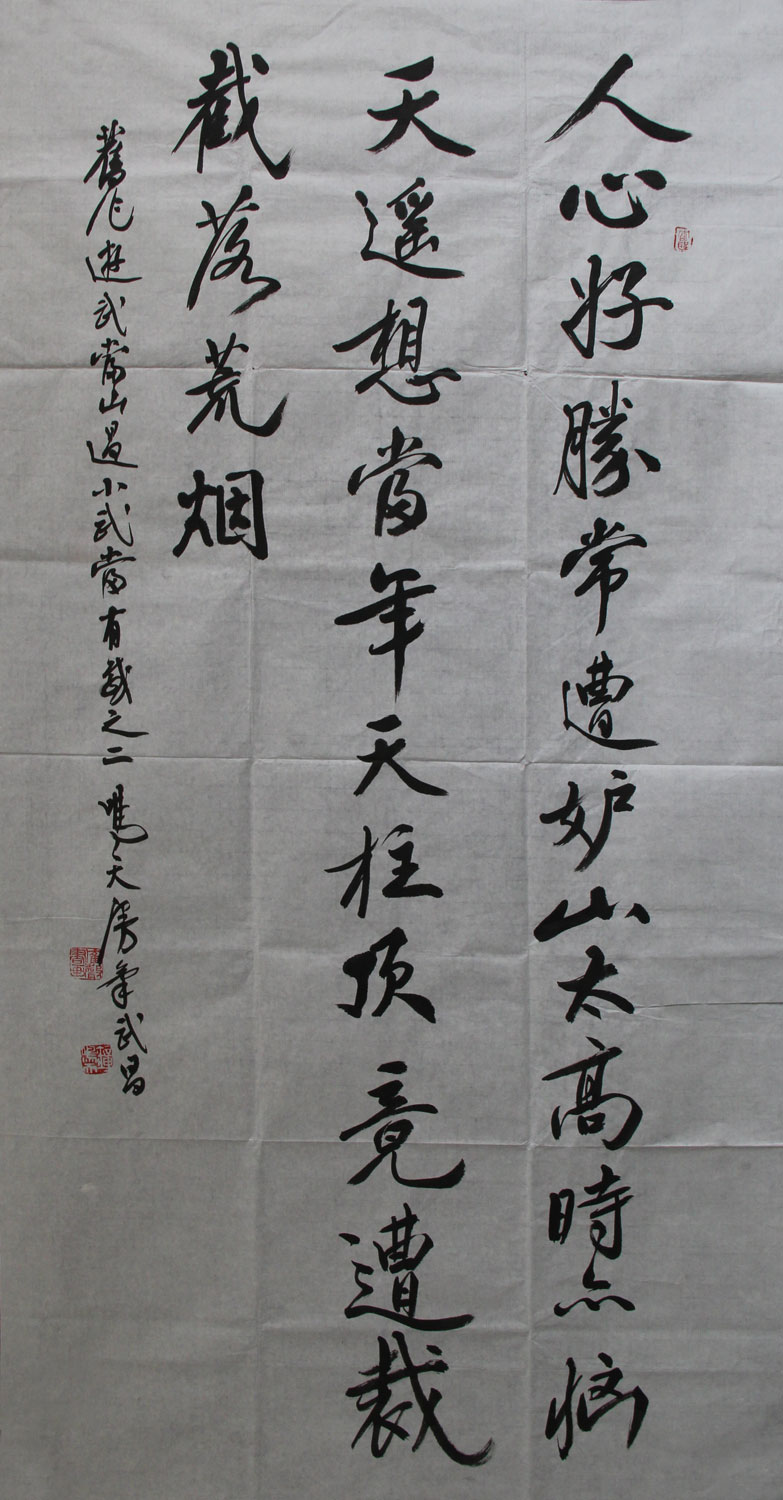 人心好勝常遭妒山太高時亦惱
天遥想當年天柱顶竟遭裁
截落荒烟
舊作遊武當山過小武當有感之二 鳴天 筆武昌